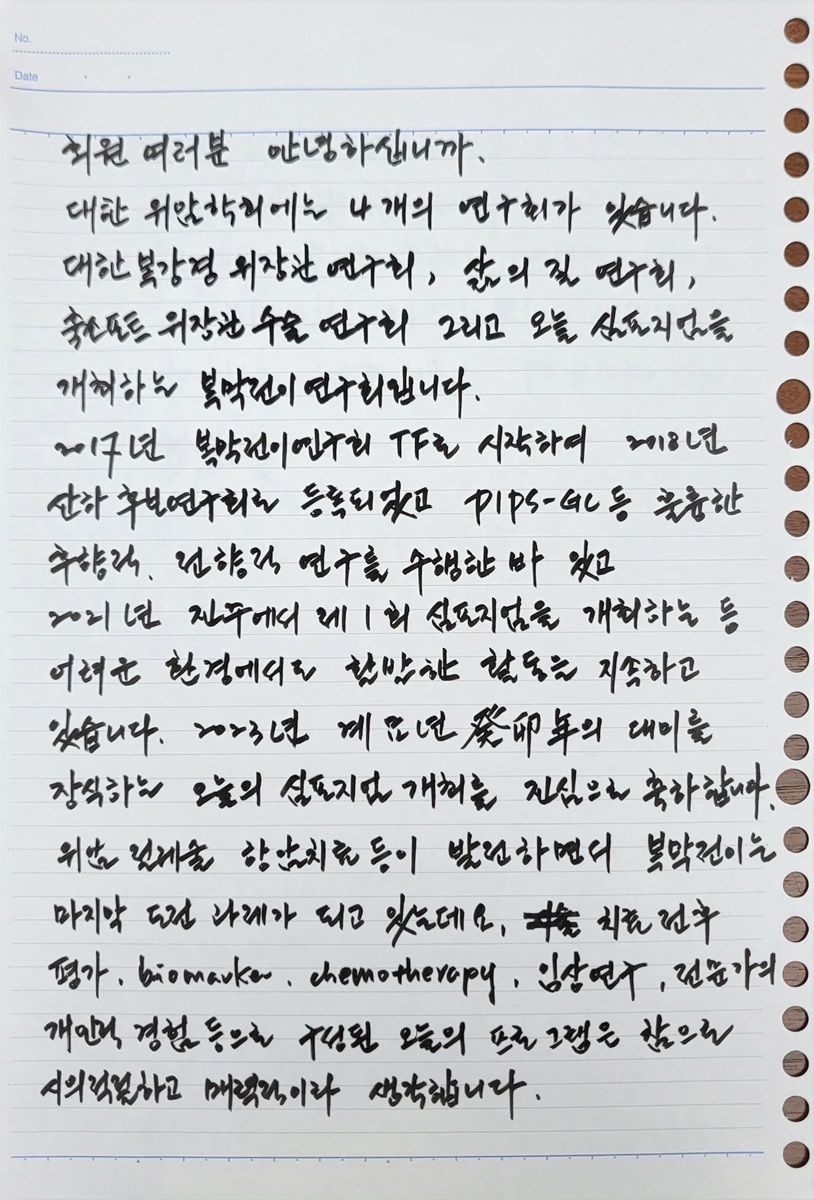 No.
Date
회원 여러분 안녕하십니까.
대한 위암학회에는 4개의 연구회가 있습니다.
대한복강경 위장관 연구회, 삶의 질 연구회,
축소포트 위장관 수술 연구회 그리고 오늘 심포지엄을
개최하는 복막전이연구회입니다.
2017년 복막전이연구회 TF로 시작하여 2018년
산하 후보연구회로 등록되었고 PIPS-GC 등 훌륭한
후향적, 전향적 연구를 수행한 바 있고
2021년 진주에서 제1회 심포지엄을 개최하는 등
어려운 환경에서도 활발한 활동을 지속하고
있습니다. 2023년 계묘년 癸卯年의 대미를
장식하는 오늘의 심포지엄 개최를 진심으로 축하합니다.
위암 절제술 항암치료 등이 발전하면서 복막전이는
마지막 도전 과제가 되고 있는데요, 치료 전후
평가, biomarker, chemotherapy, 임상연구, 전문가의
개인적 경험 등으로 구성된 오늘의 프로그램은 참으로
시의적절하고 매력적이라 생각합니다.